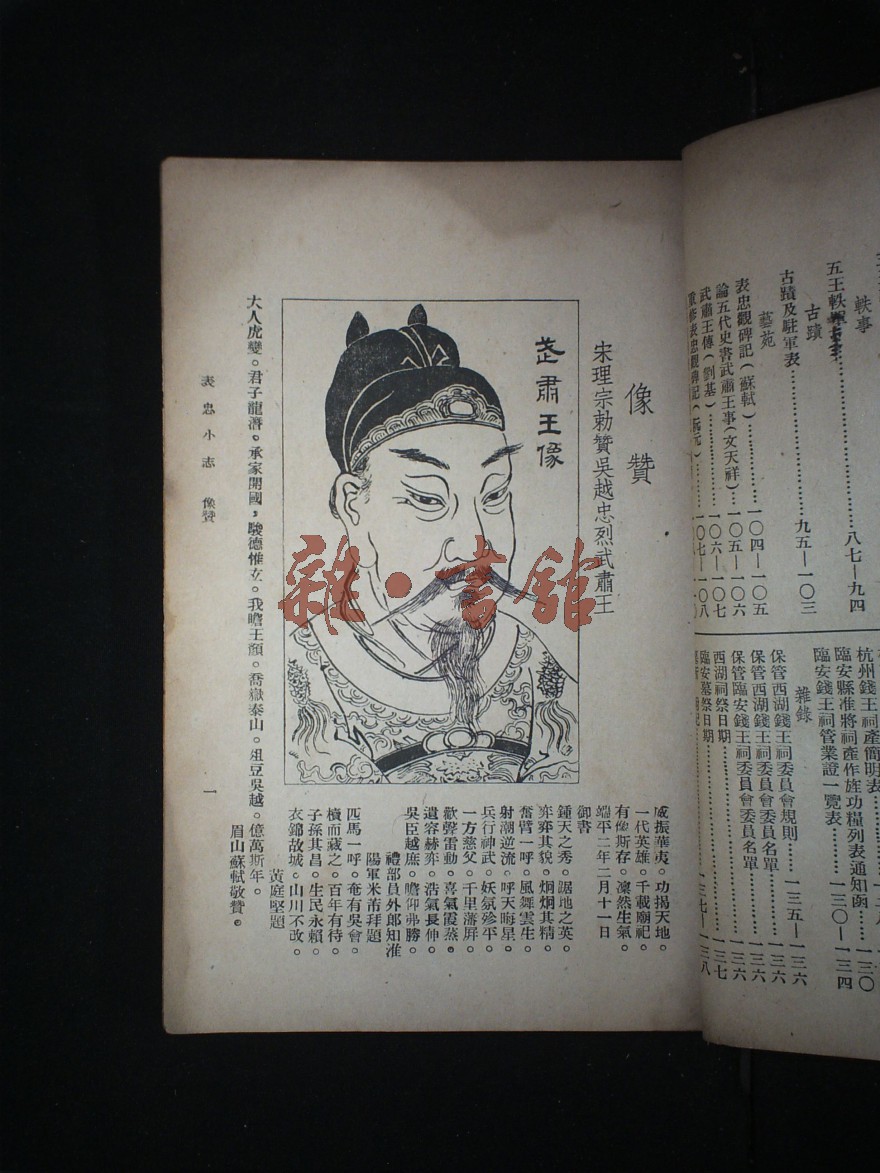 軼事
五王軼事
八七—九四
古蹟
古蹟及駐軍表
九五—一〇三
藝苑
表忠觀碑記(蘇軾)
一〇四—一〇五
論五代史書武肅王事(文天祥)
一〇五—一〇六
武肅王傳(劉基)
一〇六—一〇七
重修表忠觀碑記(阮元)
一〇七—一〇八
杭州錢王祠產簡明表
臨安縣准將祠產作旌功糧列表通知函
一三〇
臨安錢王祠管業證一覽表
一三〇—一三四
雜錄
保管西湖錢王祠委員會規則
一三五—一三六
保管西湖錢王祠委員會委員名單
一三六
保管臨安錢王祠委員會委員名單
一三六
西湖祠祭日期
一三七
臨安墓祭日期
一三七—一三八
像贊
宋理宗勅贊吳越忠烈武肅王
武肅王像
雜·書館
威振華夷。功揭天地。
一代英雄。千載廟祀。
有像斯存。凜然生氣。
端平二年二月十一日
御書
鍾天之秀。踞地之英。
弈弈其貌。炯炯其精。
奮臂一呼。風舞雲生。
射潮逆流。呼天晦星。
兵行神武。妖氛殄平。
一方慈父。千里藩屏。
歡聲雷動。喜氣霞蒸。
遺容赫弈。浩氣長伸。
吳臣越庶。瞻仰弗勝。
禮部員外郎知淮
陽軍米芾拜題
匹馬一呼。奄有吳會。
櫝而藏之。百年有待。
子孫其昌。生民永賴。
衣錦故城。山川不改。
黃庭堅題
大人虎變。君子龍潛。承家開國。駿德惟立。我瞻王顏。喬嶽泰山。俎豆吳越。億萬斯年。
眉山蘇軾敬贊。
表忠小志 像贊
一